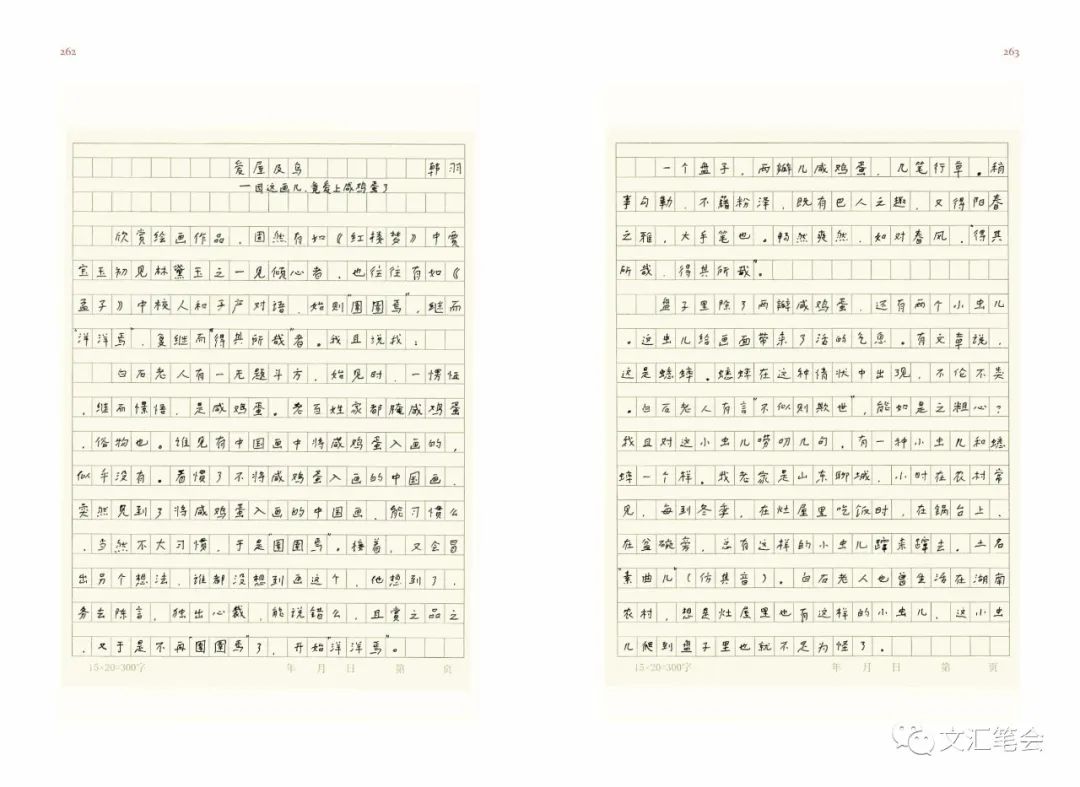 262
爱屋及乌 韩羽
一因这画儿，竟爱上咸鸡蛋了
欣赏绘画作品，固然有如《红楼梦》中贾
宝玉初见林黛玉之一见倾心者，也往往有如《
孟子》中校人和子产对语，始则“圉圉焉”，继而
“洋洋焉”，复继而“得其所哉”者。我且说我：
白石老人有一无题斗方，始见时，一愣怔
，继而憬悟，是咸鸡蛋。老百姓家都腌咸鸡蛋
，俗物也。谁见有中国画中将咸鸡蛋入画的，
似乎没有。看惯了不将咸鸡蛋入画的中国画，
突然见到了将咸鸡蛋入画的中国画，能习惯么
，当然不大习惯，于是“圉圉焉”。接着，又会冒
出另个想法，谁都没想到画这个，他想到了，
务去陈言，独出心裁，能说错么，且赏之品之
，又于是不再“圉圉焉”了，开始“洋洋焉”。
15×20=300字 年 月 日 第 页
263
一个盘子，两瓣儿咸鸡蛋，几笔行草。稍
事勾勒，不藉粉泽，既有巴人之趣，又得阳春
之雅，大手笔也。畅然爽然，如对春风，“得其
所哉，得其所哉”。
盘子里除了两瓣咸鸡蛋，还有两个小虫儿
。这虫儿给画面带来了活的气息。有文章说，
这是蟋蟀。蟋蟀在这种情状中出现，不伦不类
。白石老人有言“不似则欺世”，能如是之粗心？
我且对这小虫儿唠叨几句，有一种小虫儿和蟋
蟀一个样。我老家是山东聊城，小时在农村常
见，每到冬季，在灶屋里吃饭时，在锅台上、
在盆碗旁，总有这样的小虫儿蹿来蹿去。土名
“素曲儿”（仿其音）。白石老人也曾生活在湖南
农村，想是灶屋里也有这样的小虫儿，这小虫
儿爬到盘子里也就不足为怪了。
15×20=300字 年 月 日 第 页
文汇笔会